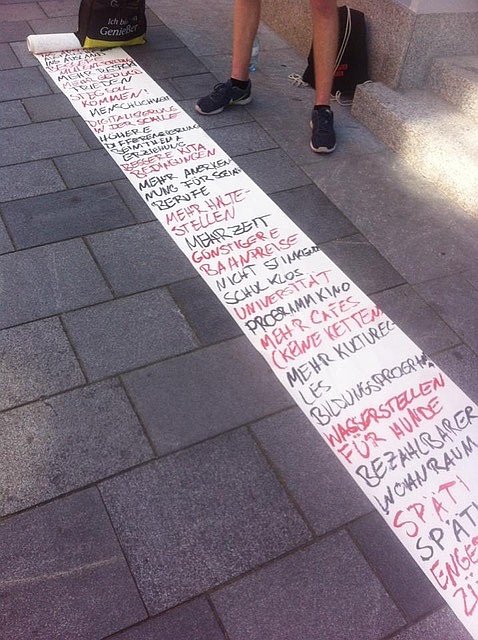 Ich bi
Genießer
MEHR
FRIEDEN
SIEG SOLL
KOMMEN!
MENSCHLICHKEIT
DIGITALISIERUNG
IN DER SCHULE
HÖHERE
DIFFERENZIERUNG
BEIM THEMA
ERZIEHUNG
BESSERE KITA
BEDINGUNGEN
MEHR ANERKEN
NUNG FÜR SOZIALE
BERUFE
MEHR HALTE-
STELLEN
MEHR ZEIT
GÜNSTIGERE
BAHNPREISE
NICHT
SCHULKLOS
UNIVERSITÄT
PROGRAMMKINO
MEHR CAFES
(KEINE KETTEN)
MEHR KULTUREL-
LES
BILDUNGSPROGRAMM
WASSERSTELLEN
FÜR HUNDE
BEZAHLBARER
WOHNRAUM
SPÄTI
SPÄTI
ENGE